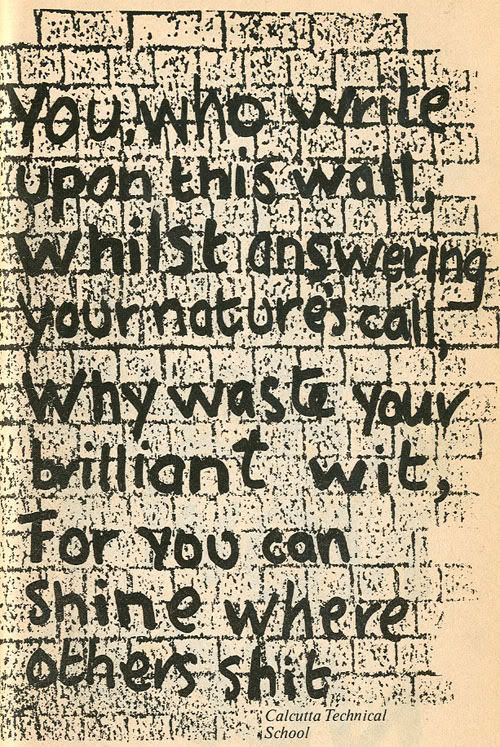 You, who write
upon this wall,
whilst answering
your nature's call,
Why waste your
brilliant wit,
For you can
shine where
others shit
Calcutta Technical
School